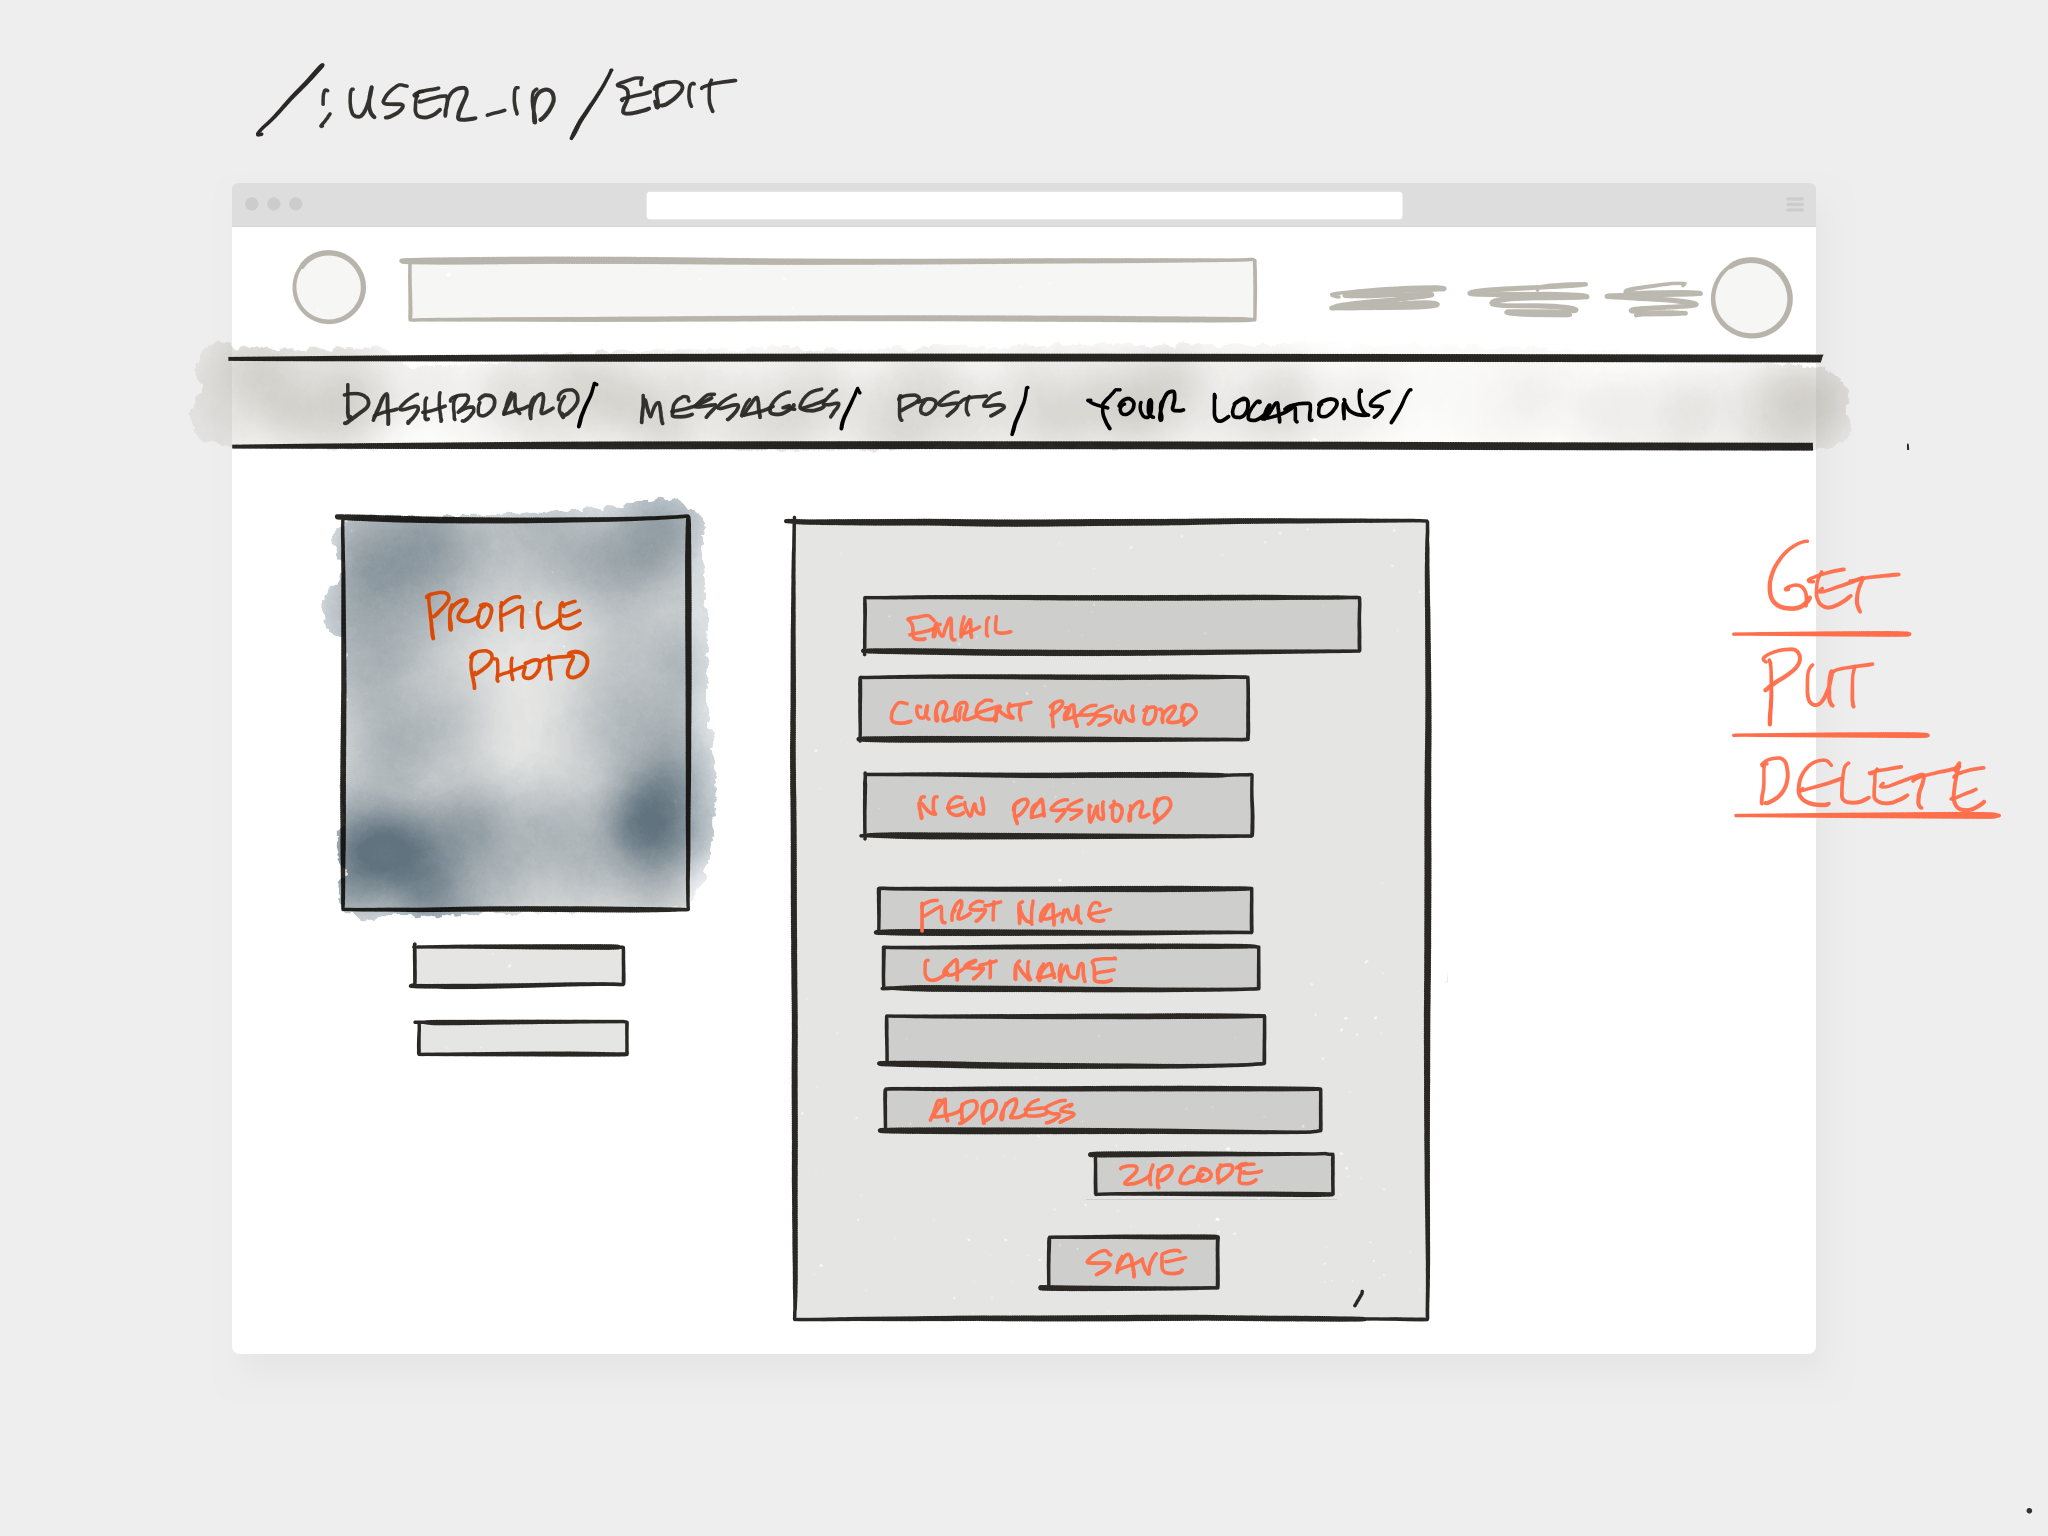 /:USER_ID/EDIT
DASHBOARD/ MESSAGES/ POSTS/ YOUR LOCATIONS/
PROFILE
PHOTO
EMAIL
CURRENT PASSWORD
NEW PASSWORD
FIRST NAME
LAST NAME
ADDRESS
ZIPCODE
SAVE
GET
PUT
DELETE